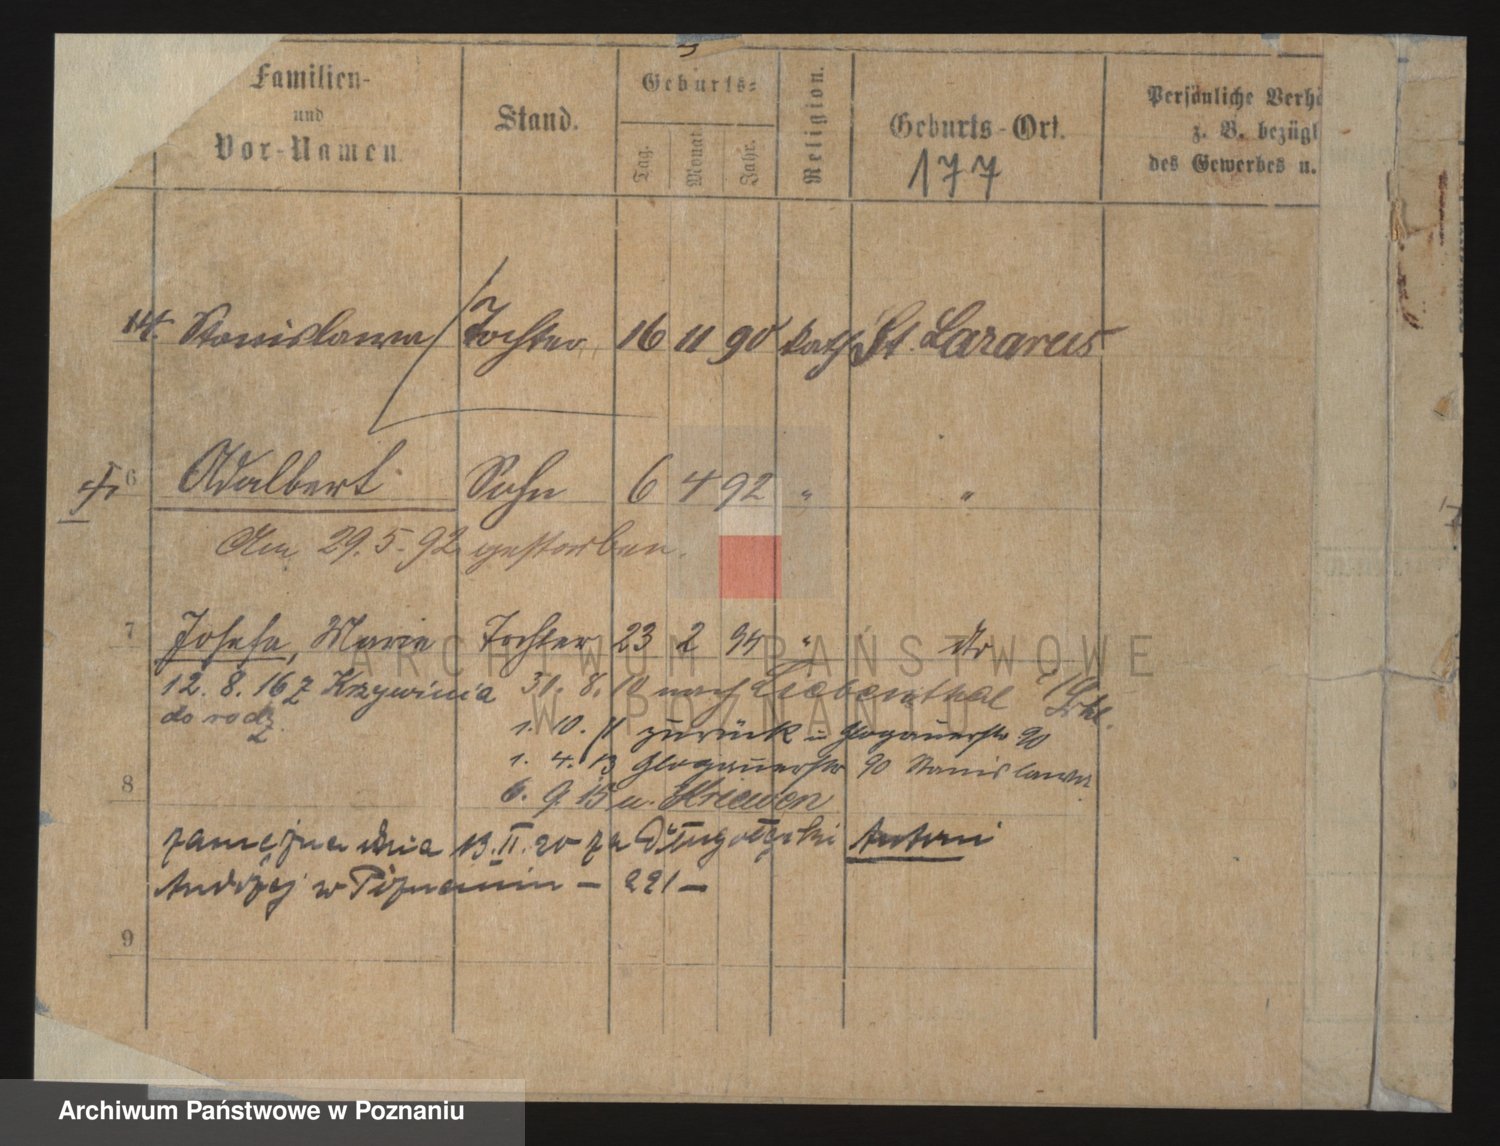 Familien-
und
Vor-Namen.
Stand.
Geburts-
Tag.
Monat
Jahr.
Religion.
Geburts-Ort.
177
Persönliche Verhä
z. B. bezügl
des Gewerbes u.
14. Stanislawa Tochter 16 11 90 kath St. Lazarus
6 Adalbert Sohn 6 4 92 " "
Am 29.5.92 gestorben.
7 Josefa, Marie Tochter 23 2 94 " do
12. 8. 16 z Krzywinia 31. 8. 10 nach Liebenthal
do rodz.
1. 10. 11 zurück u Glogauerstr 90
1. 4. 13 Glogauerstr 90 Stanislawa
8
6. 9 15 u. Kriewen
zamężna dnia 13.II.20 za Antoni
Andrzej w Poznaniu – 221 –
9
ARCHIWUM PAŃSTWOWE
W POZNANIU
Archiwum Państwowe w Poznaniu